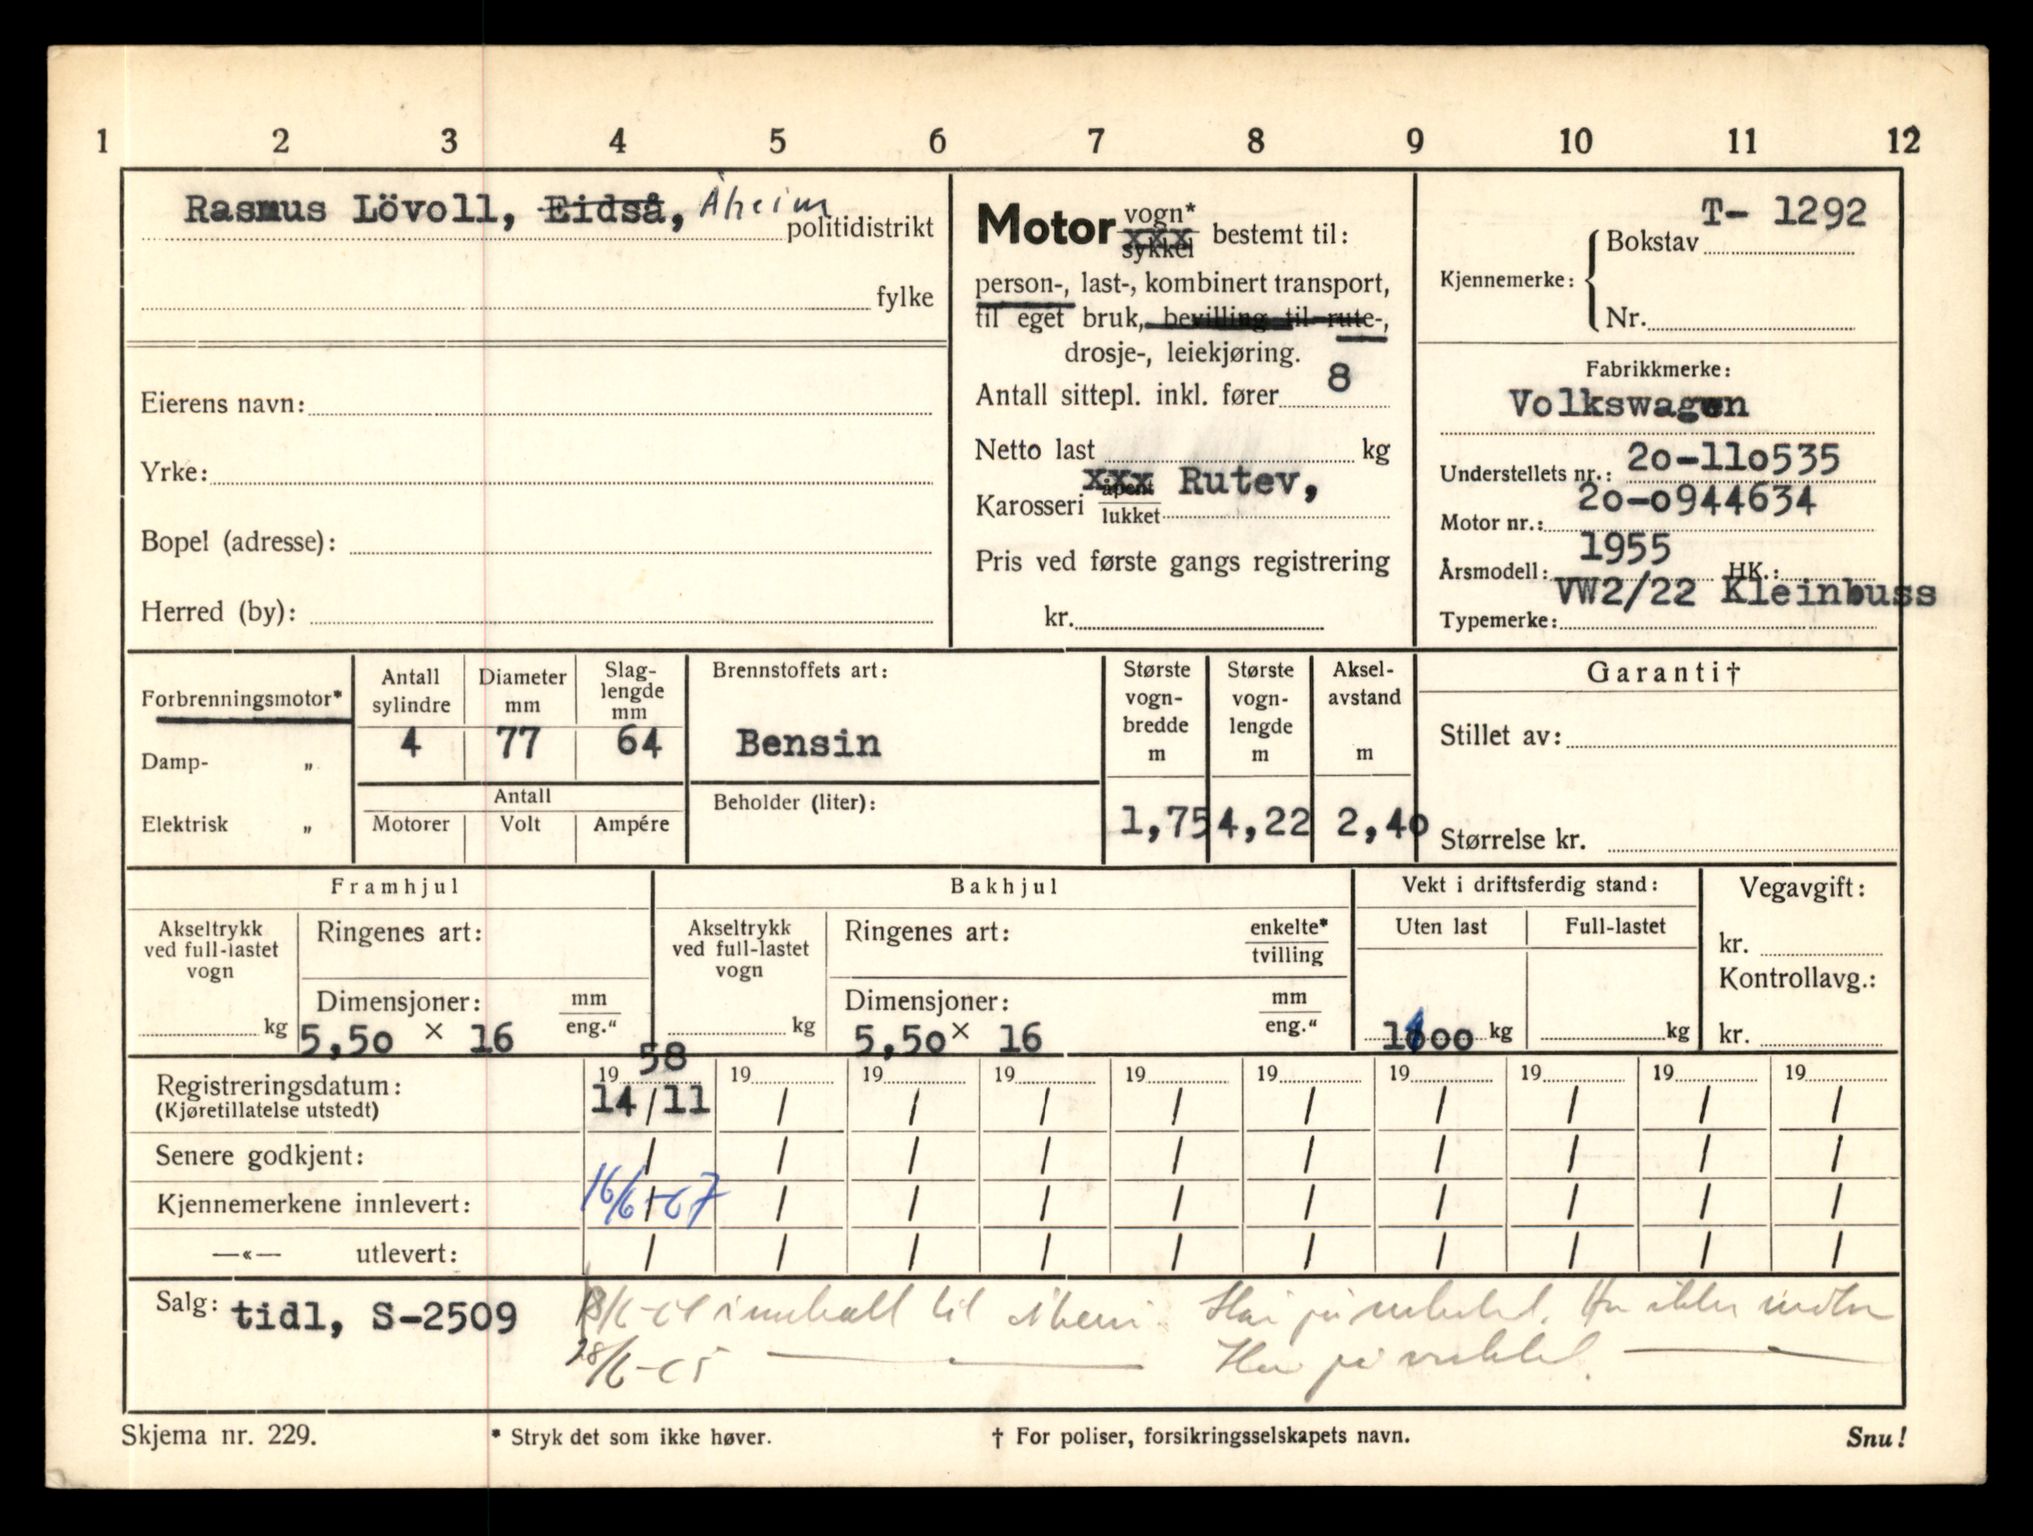 1 2 3 4 5 6 7 8 9 10 11 12
Rasmus Lövoll, Eidså, Åheim politidistrikt
fylke
Eierens navn:
Yrke:
Bopel (adresse):
Herred (by):
Motor vogn* xxx sykkel bestemt til:
person-, last-, kombinert transport,
til eget bruk, bevilling til rute-,
drosje-, leiekjøring.
Antall sittepl. inkl. fører 8
Netto last kg
Karosseri xxx åpent lukket Rutev,
Pris ved første gangs registrering
kr.
T- 1292
Kjennemerke: Bokstav
Nr.
Fabrikkmerke:
Volkswagen
Understellets nr.: 2o-11o535
Motor nr.: 2o-o944634
Årsmodell: 1955 HK.:
Typemerke: VW2/22 Kleinbuss
Forbrenningsmotor*
Damp- „
Elektrisk „
Antall sylindre
4
Diameter mm
77
Slag-lengde mm
64
Antall
Motorer Volt Ampére
Brennstoffets art:
Bensin
Beholder (liter):
Største vogn-bredde m
1,75
Største vogn-lengde m
4,22
Aksel-avstand m
2,4o
Garanti†
Stillet av:
Størrelse kr.
Framhjul
Akseltrykk ved full-lastet vogn
kg
Ringenes art:
Dimensjoner: mm eng."
5,5o × 16
Bakhjul
Akseltrykk ved full-lastet vogn
kg
Ringenes art: enkelte* tvilling
Dimensjoner: mm eng."
5,5o × 16
Vekt i driftsferdig stand:
Uten last Full-lastet
kg kg
Vegavgift:
kr.
Kontrollavg.:
kr.
Registreringsdatum: 19 58 19 19 19 19 19 19 19 19 19
(Kjøretillatelse utstedt) 14/11 / / / / / / / / /
Senere godkjent: / / / / / / / / / /
Kjennemerkene innlevert: 16/6-67 / / / / / / / / /
—«— utlevert: / / / / / / / / / /
Salg: tidl, S-2509
til Åheim
28/6-65
Skjema nr. 229. * Stryk det som ikke høver. † For poliser, forsikringsselskapets navn. Snu!